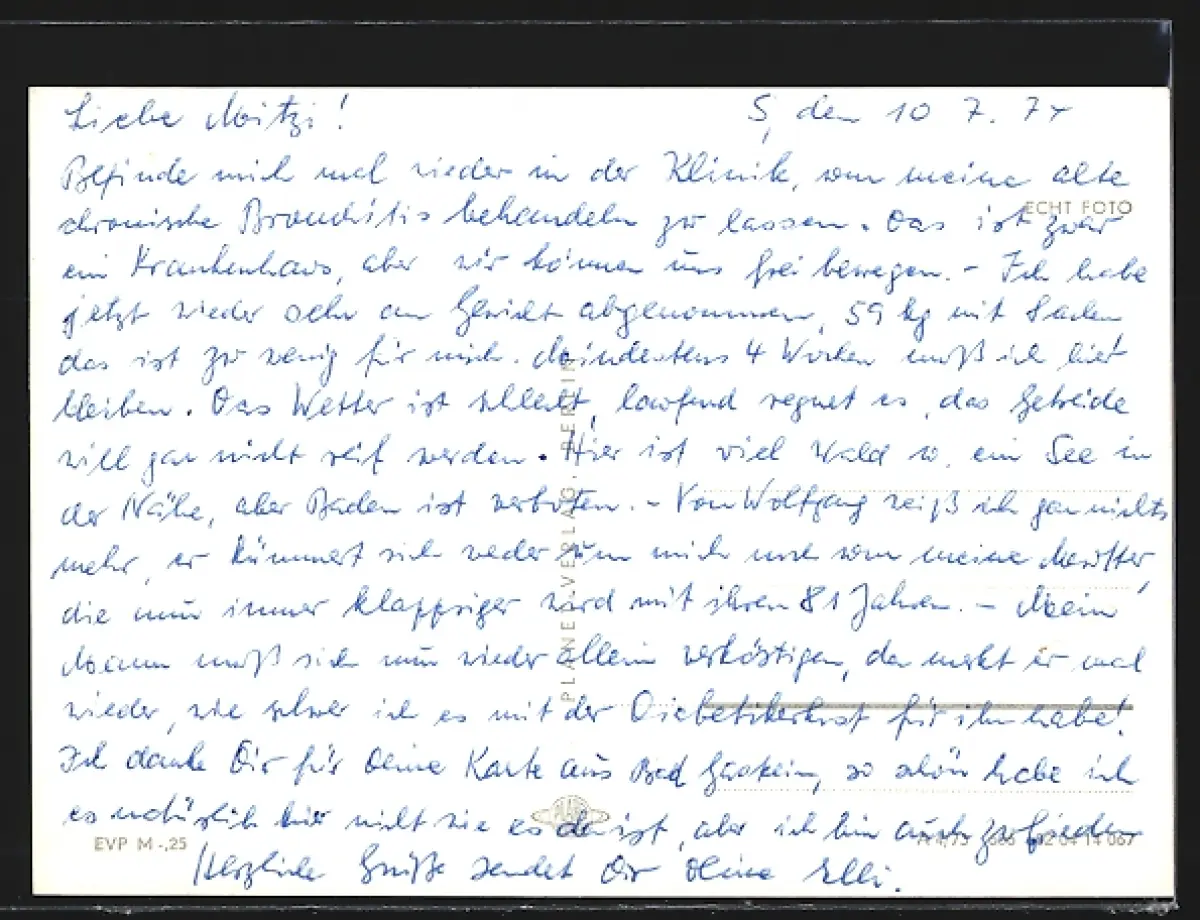 Liebe Mitzi!
S, den 10 7. 74
Befinde mich mal wieder in der Klinik, um meine alte
ECHT FOTO
chronische Bronchitis behandeln zu lassen. Das ist zwar
ein Krankenhaus, aber wir können uns frei bewegen. - Ich habe
jetzt wieder sehr an Gewicht abgenommen, 59 kg mit Sachen
das ist zu wenig für mich. Mindestens 4 Wochen muß ich hier
bleiben. Das Wetter ist schlecht, laufend regnet es, das Getreide
will gar nicht reif werden. Hier ist viel Wald u. ein See in
der Nähe, aber Baden ist verboten. - Von Wolfgang weiß ich gar nichts
mehr, er kümmert sich weder um mich noch um meine Mutter
die nun immer klappriger wird mit ihren 81 Jahren. - Mein
Mann muß sich nun wieder allein verköstigen, da merkt er mal
wieder, wie schwer ich es mit der Diabetikerkost für ihn habe!
Ich danke Dir für Deine Karte aus Bad Gastein, so schön habe ich
es natürlich hier nicht wie es da ist, aber ich bin auch zufrieden
Herzliche Grüße sendet Dir Deine Elli.
PLANET-VERLAG BERLIN
PLANET
EVP M -,25